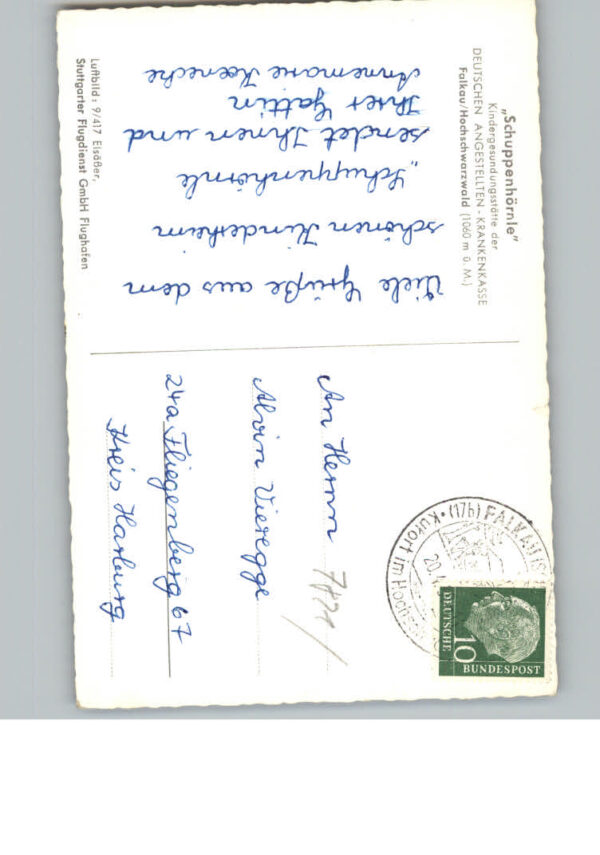 „Schuppenhörnle"
Kindergesundungsstätte der
DEUTSCHEN ANGESTELLTEN-KRANKENKASSE
Falkau/Hochschwarzwald (1060 m ü. M.)
Viele Grüße aus dem
schönen Kinderheim
„Schuppenhörnle
sendet Ihnen und
Ihrer Gattin
Annemarie
Luftbild: 9/417 Elsäßer,
Stuttgarter Flugdienst GmbH Flughafen
(17b) FALKAU
Kurort im
20.
10
DEUTSCHE
BUNDESPOST
An Herrn
Alvin Vieregge
24a Fliegenberg 67
Kreis Harburg